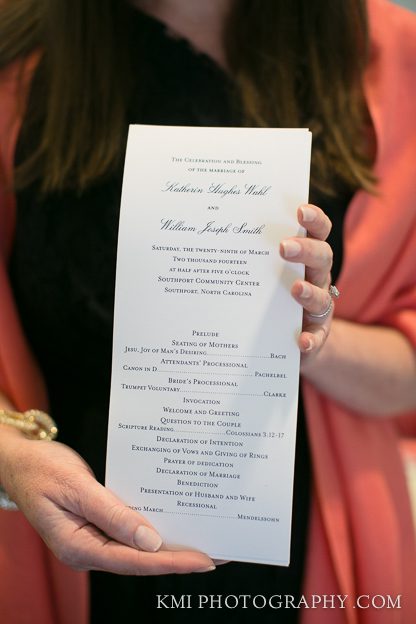 The Celebration and Blessing
of the marriage of
Katherin Hughes Wahl
and
William Joseph Smith
Saturday, the twenty-ninth of March
Two thousand fourteen
at half after five o'clock
Southport Community Center
Southport, North Carolina
Prelude
Seating of Mothers
Jesu, Joy of Man's Desiring....................Bach
Attendants' Processional
Canon in D....................Pachelbel
Bride's Processional
Trumpet Voluntary....................Clarke
Invocation
Welcome and Greeting
Question to the Couple
Scripture Reading....................Colossians 3.12-17
Declaration of Intention
Exchanging of Vows and Giving of Rings
Prayer of dedication
Declaration of Marriage
Benediction
Presentation of Husband and Wife
Recessional
March....................Mendelssohn
KMI PHOTOGRAPHY.COM